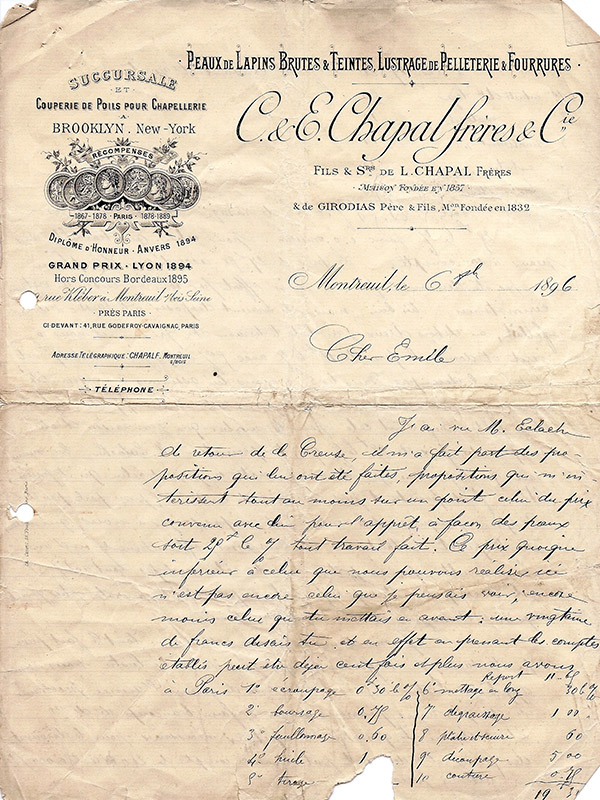 · PEAUX DE LAPINS BRUTES & TEINTES, LUSTRAGE DE PELLETERIE & FOURRURES ·
C. & E. Chapal frères & Cie
FILS & SRS DE L. CHAPAL FRÈRES
· MAISON FONDÉE EN 1857 ·
& de GIRODIAS Père & Fils, Mon Fondée en 1832
SUCCURSALE
· ET ·
COUPERIE DE POILS POUR CHAPELLERIE
A
BROOKLYN. New-York
RÉCOMPENSES
1867-1878 · PARIS · 1878-1889
DIPLÔME D'HONNEUR · ANVERS 1894
GRAND PRIX · LYON 1894
Hors Concours Bordeaux 1895
rue Kléber à Montreuil s/ Bois Seine
· PRÈS PARIS ·
CI DEVANT: 41, RUE GODEFROY-CAVAIGNAC, PARIS
ADRESSE TÉLÉGRAPHIQUE: CHAPALF. MONTREUIL
S/BOIS
· TÉLÉPHONE ·
Montreuil, le 6 1896
Cher Emile
J'ai vu M.
de retour de la Creuse, il m'a fait part des pro-
positions qui lui ont été faites, propositions qui m'in
téressent tout au moins sur un point celui du prix
convenu avec lui pour l'apprêt, à façon des peaux
soit le tout travail fait. Ce prix quoique
inférieur à celui que nous pouvons réaliser ici
n'est pas encore celui que je pensais voir, encore
moins celui que tu mettais en avant: une vingtaine
de francs disais tu, et en effet en prenant les comptes
établis peut être déjà cent fois et plus nous avons
à Paris 1° écroupage 0f30 le % 6° mettage en long 30 le %
Report
2° boursage 0.75 7° degraissage 1 00
3° foullonnage 0.60 8 60
4° huile 1 9° découpage 5.00
5° tirage 10 couture 0.75
19